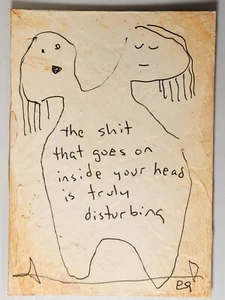 the shit
that goes on
inside your head
is truly
disturbing
eq